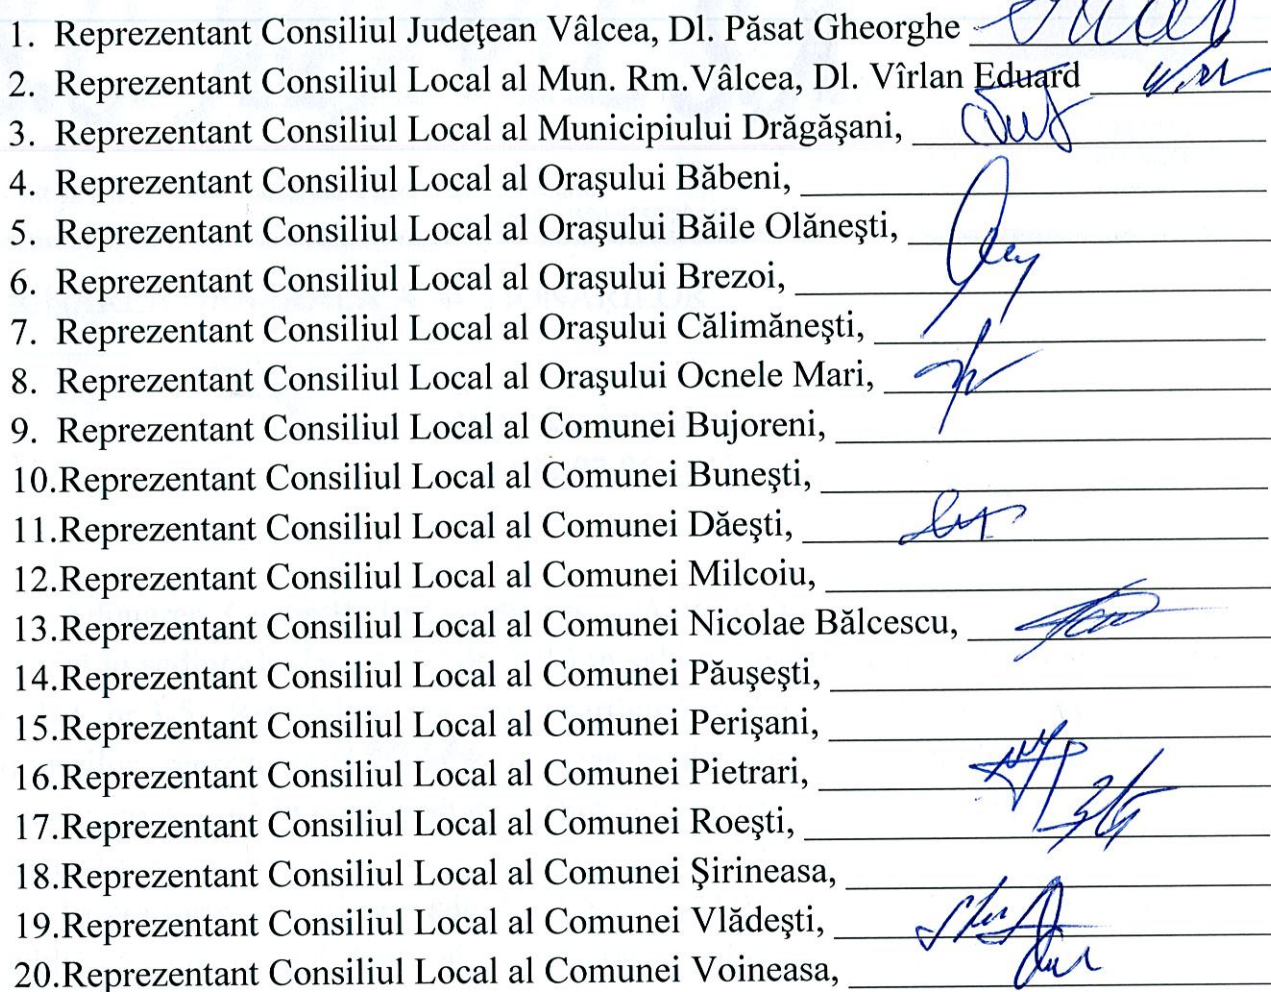 1. Reprezentant Consiliul Judeţean Vâlcea, Dl. Păsat Gheorghe
2. Reprezentant Consiliul Local al Mun. Rm.Vâlcea, Dl. Vîrlan Eduard
3. Reprezentant Consiliul Local al Municipiului Drăgăşani,
4. Reprezentant Consiliul Local al Oraşului Băbeni,
5. Reprezentant Consiliul Local al Oraşului Băile Olăneşti,
6. Reprezentant Consiliul Local al Oraşului Brezoi,
7. Reprezentant Consiliul Local al Oraşului Călimăneşti,
8. Reprezentant Consiliul Local al Oraşului Ocnele Mari,
9. Reprezentant Consiliul Local al Comunei Bujoreni,
10.Reprezentant Consiliul Local al Comunei Buneşti,
11.Reprezentant Consiliul Local al Comunei Dăeşti,
12.Reprezentant Consiliul Local al Comunei Milcoiu,
13.Reprezentant Consiliul Local al Comunei Nicolae Bălcescu,
14.Reprezentant Consiliul Local al Comunei Păuşeşti,
15.Reprezentant Consiliul Local al Comunei Perişani,
16.Reprezentant Consiliul Local al Comunei Pietrari,
17.Reprezentant Consiliul Local al Comunei Roeşti,
18.Reprezentant Consiliul Local al Comunei Şirineasa,
19.Reprezentant Consiliul Local al Comunei Vlădeşti,
20.Reprezentant Consiliul Local al Comunei Voineasa,